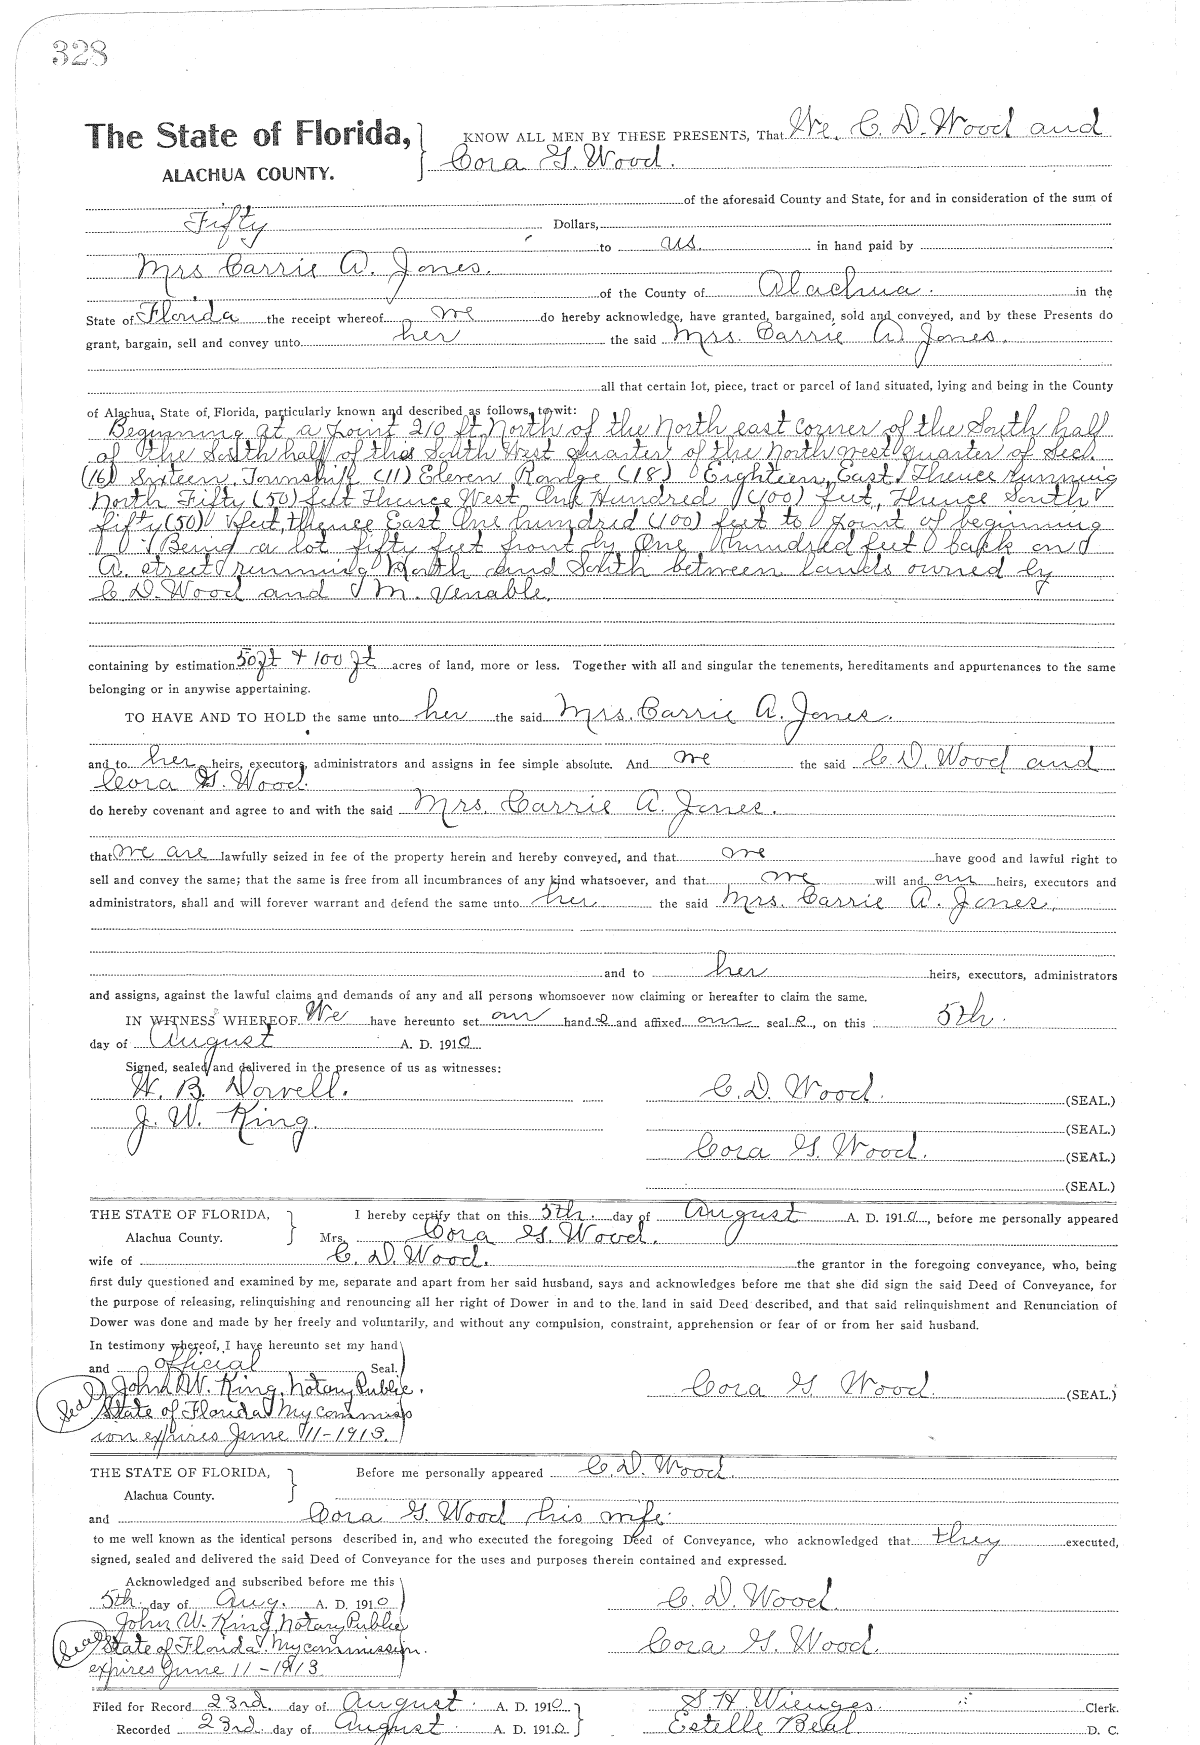 328
The State of Florida, KNOW ALL MEN BY THESE PRESENTS, That We, C. D. Wood and
ALACHUA COUNTY. Cora G. Wood.
of the aforesaid County and State, for and in consideration of the sum of
Fifty Dollars,
to us in hand paid by
Mrs Carrie A. Jones.
of the County of Alachua. in the
State of Florida the receipt whereof we do hereby acknowledge, have granted, bargained, sold and conveyed, and by these Presents do
grant, bargain, sell and convey unto her the said Mrs. Carrie A. Jones.
all that certain lot, piece, tract or parcel of land situated, lying and being in the County
of Alachua, State of Florida, particularly known and described as follows, to-wit:
Beginning at a point 210 ft. North of the North east corner of the South half
of the South half of the South West quarter of the North west quarter of Sec.
(16) Sixteen, Township (11) Eleven Range (18) Eighteen, East, Thence running
North Fifty (50) feet Thence West, One Hundred (100) feet, Thence South
fifty (50) feet, thence East One hundred (100) feet to point of beginning
Being a lot fifty feet front by One hundred feet back on
A. street running North and South between lands owned by
C. D. Wood and M. Venable.
containing by estimation 50 ft + 100 ft acres of land, more or less. Together with all and singular the tenements, hereditaments and appurtenances to the same
belonging or in anywise appertaining.
TO HAVE AND TO HOLD the same unto her the said Mrs. Carrie A. Jones.
and to her heirs, executors, administrators and assigns in fee simple absolute. And we the said C. D. Wood and
Cora G. Wood.
do hereby covenant and agree to and with the said Mrs. Carrie A. Jones.
that we are lawfully seized in fee of the property herein and hereby conveyed, and that we have good and lawful right to
sell and convey the same; that the same is free from all incumbrances of any kind whatsoever, and that we will and our heirs, executors and
administrators, shall and will forever warrant and defend the same unto her the said Mrs. Carrie A. Jones,
and to her heirs, executors, administrators
and assigns, against the lawful claims and demands of any and all persons whomsoever now claiming or hereafter to claim the same.
IN WITNESS WHEREOF We have hereunto set our hand s and affixed our seal s, on this 5th.
day of August A. D. 1910
Signed, sealed and delivered in the presence of us as witnesses:
W. B. Dowell. C. D. Wood. (SEAL.)
J. W. King. (SEAL.)
Cora G. Wood. (SEAL.)
(SEAL.)
THE STATE OF FLORIDA, I hereby certify that on this 5th. day of August A. D. 1910, before me personally appeared
Alachua County. Mrs. Cora G. Wood.
wife of C. D. Wood. the grantor in the foregoing conveyance, who, being
first duly questioned and examined by me, separate and apart from her said husband, says and acknowledges before me that she did sign the said Deed of Conveyance, for
the purpose of releasing, relinquishing and renouncing all her right of Dower in and to the land in said Deed described, and that said relinquishment and Renunciation of
Dower was done and made by her freely and voluntarily, and without any compulsion, constraint, apprehension or fear of or from her said husband.
In testimony whereof, I have hereunto set my hand
and official Seal.
Seal John W. King, Notary Public. Cora G. Wood. (SEAL.)
State of Florida My commiss
ion expires June 11-1913.
THE STATE OF FLORIDA, Before me personally appeared C. D. Wood.
Alachua County.
and Cora G. Wood his wife.
to me well known as the identical persons described in, and who executed the foregoing Deed of Conveyance, who acknowledged that they executed,
signed, sealed and delivered the said Deed of Conveyance for the uses and purposes therein contained and expressed.
Acknowledged and subscribed before me this
5th. day of Aug. A. D. 1910 C. D. Wood.
John W. King, Notary Public
Seal State of Florida. My commission. Cora G. Wood.
expires June 11-1913
Filed for Record 23rd. day of August. A. D. 1910 S. H. Wienges. Clerk.
Recorded 23rd. day of August. A. D. 1910. Estelle Beal. D. C.